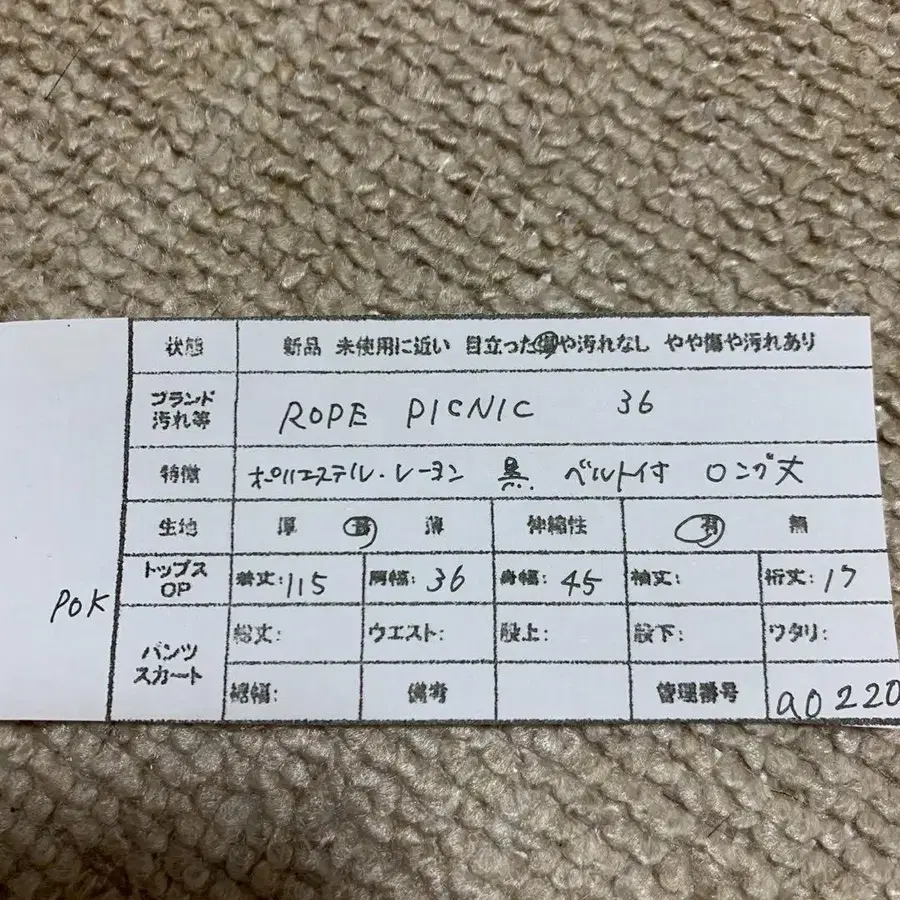 状態 新品 未使用に近い 目立った傷や汚れなし やや傷や汚れあり
ブランド 汚れ等 ROPE PICNIC 36
特徴 ポリエステル・レーヨン 黒 ベルト付 ロング丈
生地 厚 普 薄 伸縮性 有 無
トップス OP 着丈:115 肩幅:36 身幅:45 袖丈: 裄丈:17
POK
パンツ スカート 総丈: ウエスト: 股上: 股下: ワタリ:
裾幅: 備考 管理番号 a0220